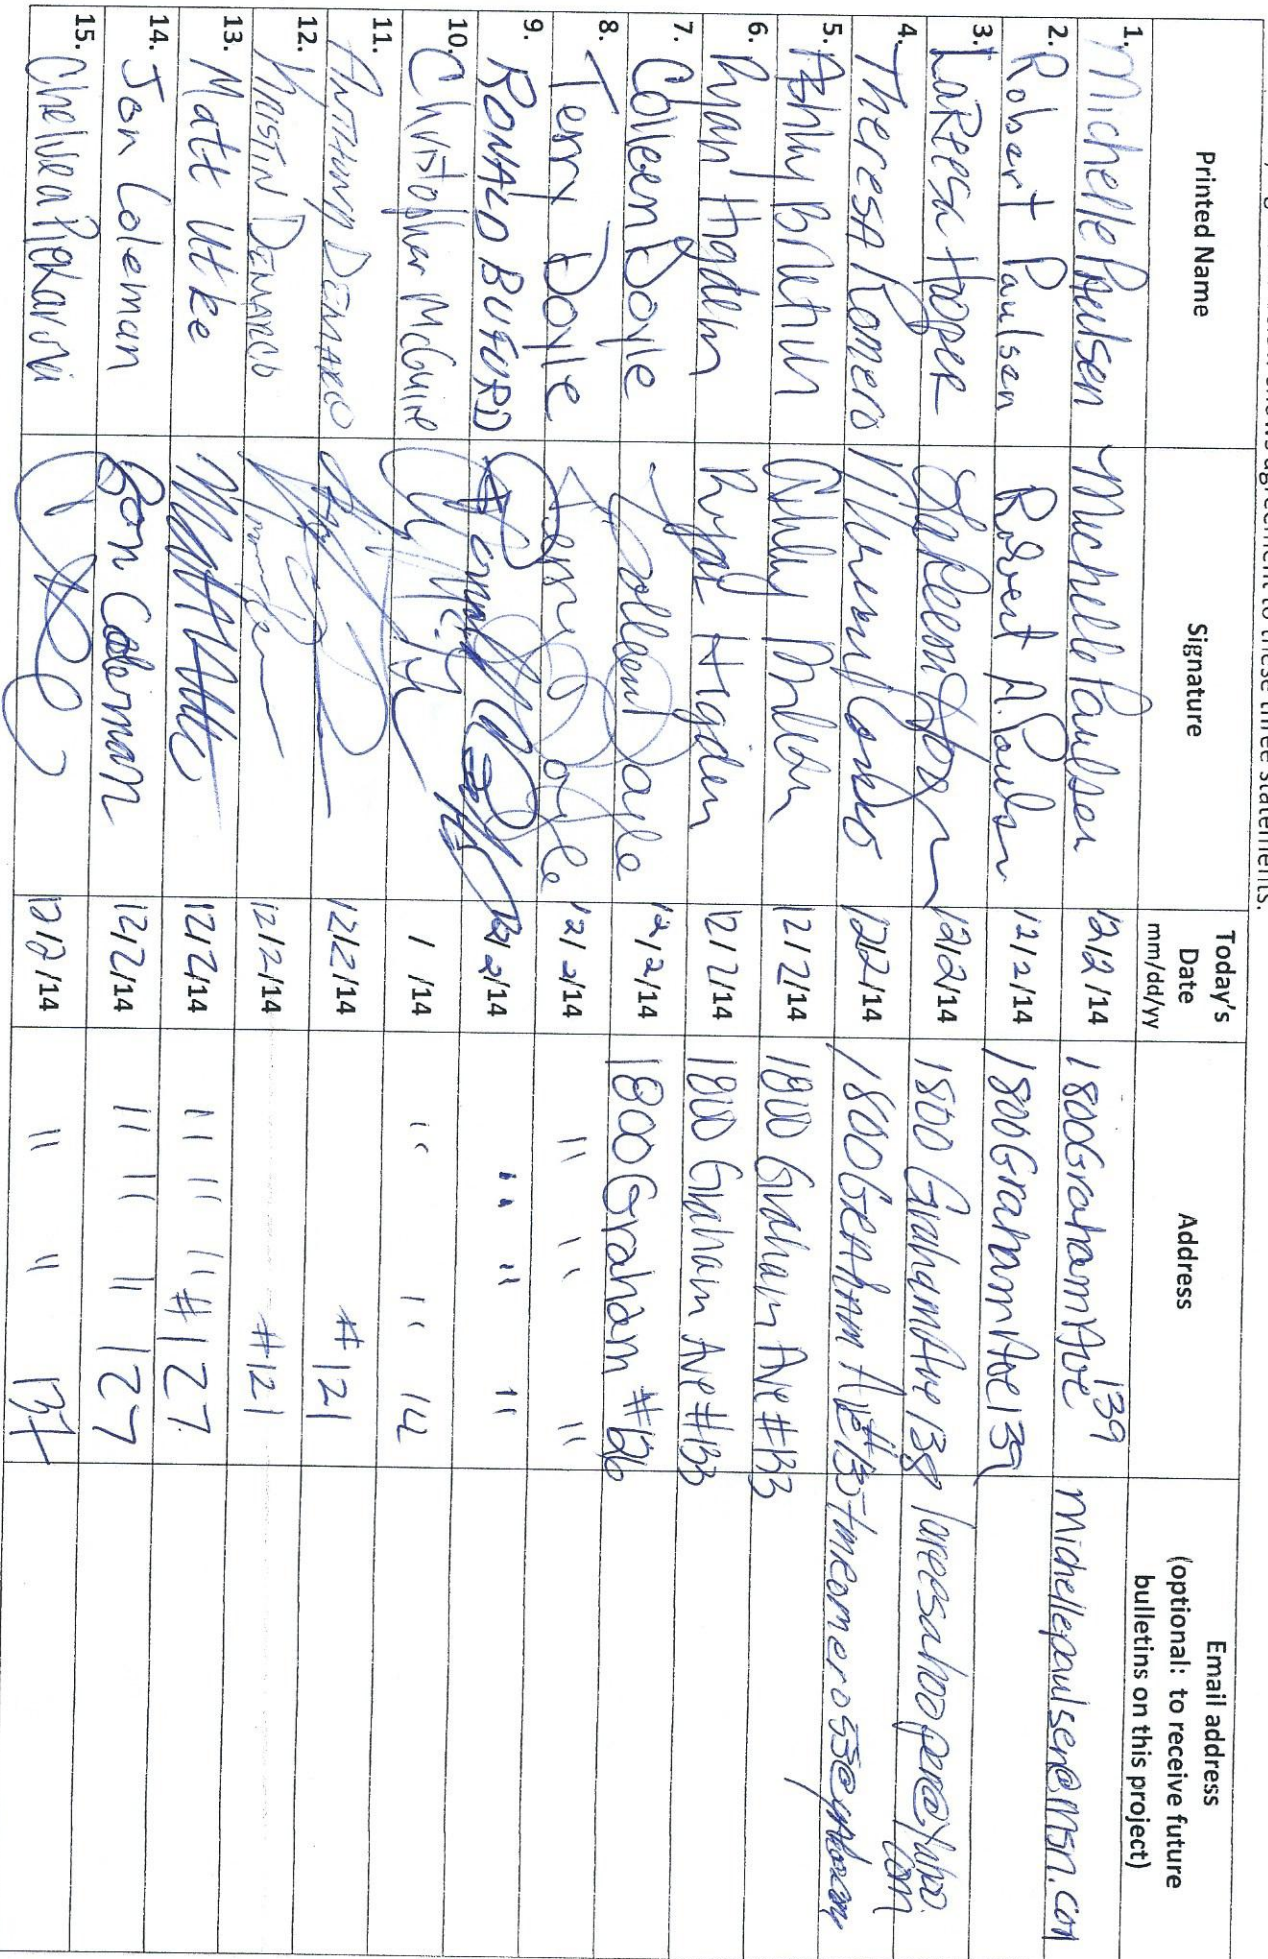 shows agreement to these three statements.
Printed Name Signature Today's Date mm/dd/yy Address Email address (optional: to receive future bulletins on this project)
1. Michelle Paulsen Michelle Paulsen 12/2/14 1800 Graham Ave 139 michellepaulsen@msn.com
2. Robert Paulsen Robert A. Paulsen 12/2/14 1800 Graham Ave 139
3. LaReesa Hooper LaReesa Hooper 12/2/14 1800 Graham Ave 138 lareesahooper@yahoo.com
4. Theresa Romero 12/2/14 1800 Graham Ave #135
5. Ashly 12/2/14 1800 Graham Ave #133
6. Ryan Higdem Ryan Higdem 12/2/14 1800 Graham Ave #133
7. Colleen Doyle Colleen Doyle 12/2/14 1800 Graham #126
8. Terry Doyle Terry Doyle 12/2/14 " " "
9. RONALD BUFORD 12/2/14 " " "
10. Christopher McGuire / /14 " "
11. Anthony DeMarco 12/2/14 #121
12. Kristin DeMarco 12/2/14 #121
13. Matt Utke 12/2/14 " " " #127
14. Jon Coleman Jon Coleman 12/2/14 " " " 127
15. Chelsea 12/2/14 " "